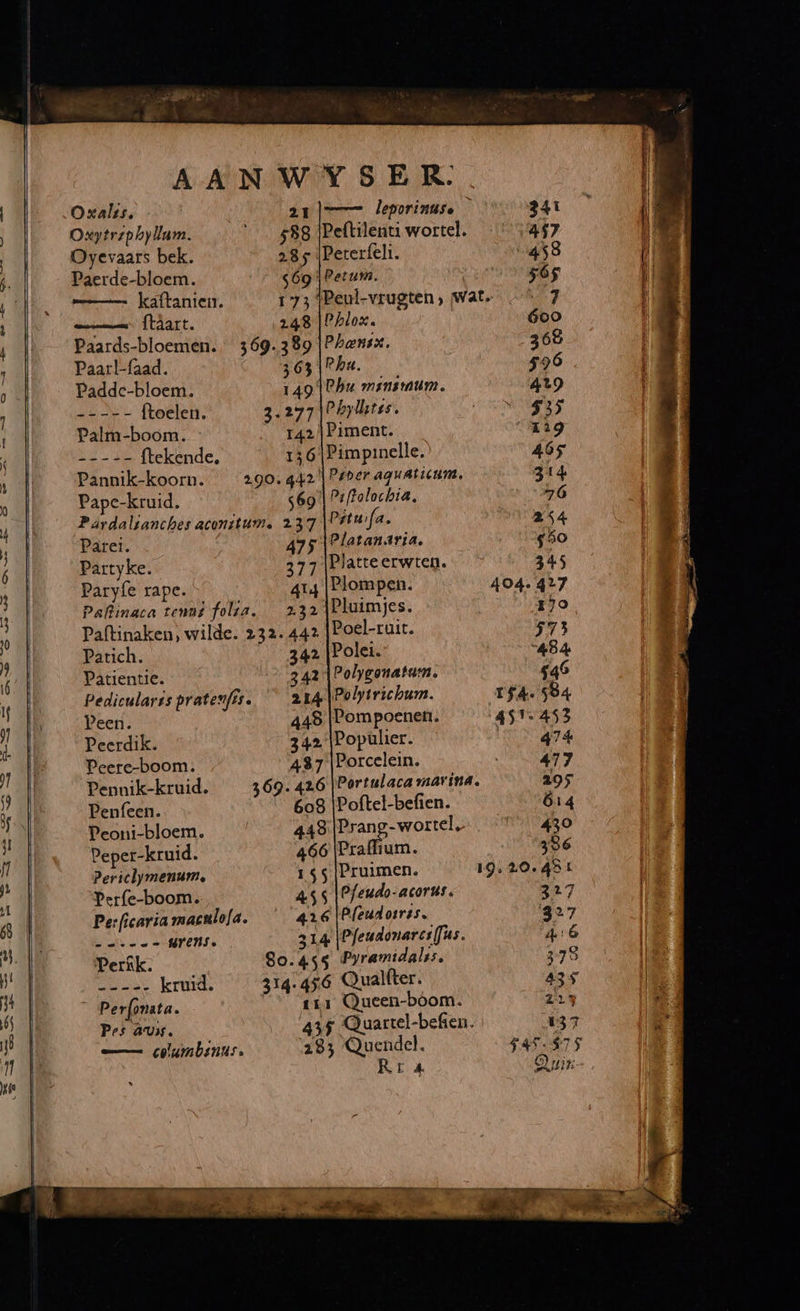 AANWYSER.
Oxalis. 21
Oxytriphyllum. 588
Oyevaars bek. 285
Paerde-bloem. 569
—— kaſtanien. 173
—— ſtaart. 248
Paards-bloemen. 369. 389
Paarl-ſaad. 363
Padde-bloem. 149
----- ſtoelen. 3. 277
Palm-boom. 142
----- ſtekende. 136
Pannik-koorn. 290. 442
Pape-kruid. 569
Pardalianches aconitum. 237
Parei. 475
Partyke. 377
Paryſe rape. 414
Paſtinaca tenui folia. 232
Paſtinaken, wilde. 232. 442
Patich. 342
Patientie. 342
Pedicularis pratenſis. 214
Peen. 448
Peerdik. 342
Peere-boom. 487
Pennik-kruid. 369. 426
Penſeen. 608
Peoni-bloem. 448
Peper-kruid. 466
Periclymenum. 155
Perſe-boom. 455
Perſicaria maculoſa. 426
------ urens. 314
Perſik. 80. 455
----- kruid. 314. 456
Perſonata. 111
Pes avis. 435
—— columbinus. 283
—— leporinus. 341
Peſtilenti wortel. 457
Peterſeli. 458
Petum. 565
Peul-vrugten, wat. 7
Phlox. 600
Phœnix. 368
Phu. 596
Phu minimum. 419
Phyllitis. 535
Piment. 119
Pimpinelle. 465
Piper aquaticum. 314
Piſtolochia. 76
Pituiſa. 254
Platanaria. 550
Platte erwten. 345
Plompen. 404. 427
Pluimjes. 170
Poel-ruit. 573
Polei. 484
Polygonatum. 546
Polytrichum. 154. 584
Pompoenen. 451. 453
Populier. 474
Porcelein. 477
Portulaca marina. 295
Poſtel-beſien. 614
Prang-wortel. 430
Praſſium. 386
Pruimen. 19. 20. 481
Pſeudo-acorus. 327
Pſeudoiris. 327
Pſeudonarciſſus. 406
Pyramidalis. 378
Qualſter. 435
Queen-boom. 223
Quartel-beſien. 137
Quendel. 545. 575
Rr 4
Quin-